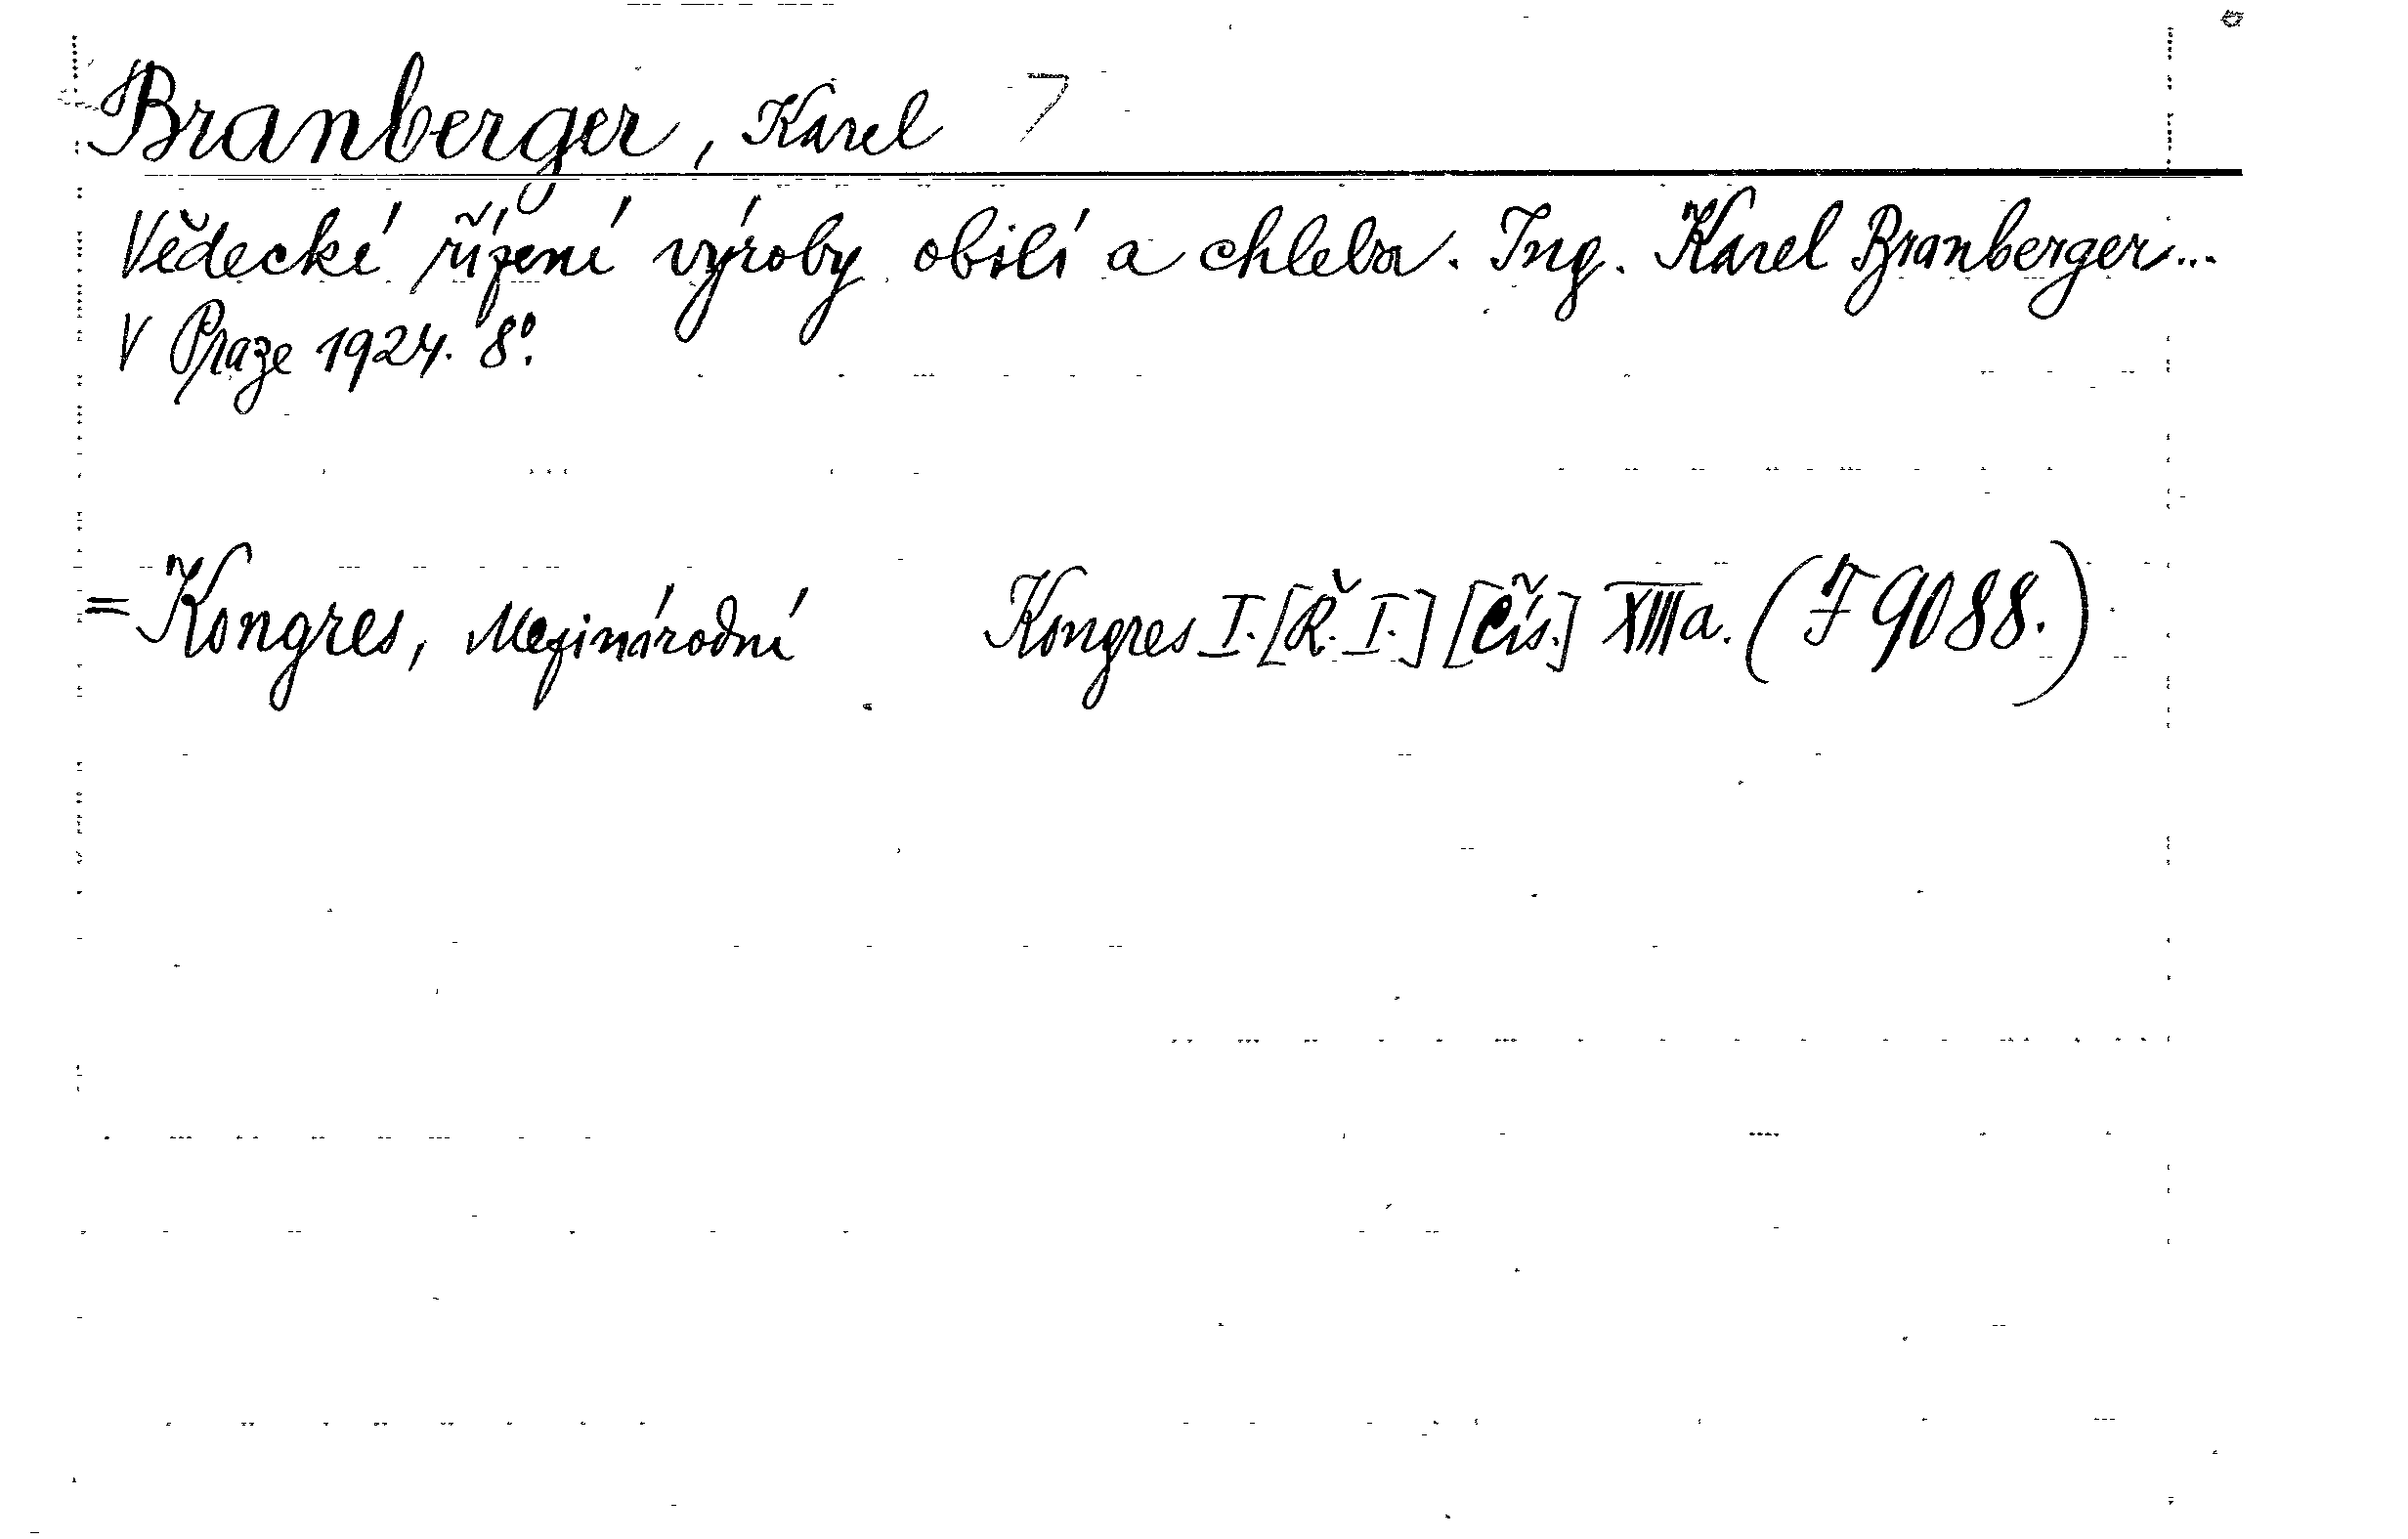 Branberger, Karel 7
Vědecké řízení výroby obilí a chleba. Ing. Karel Branberger...
V Praze 1924. 8°.
= Kongres, Mezinárodní Kongres I. [Ř. I.] [Čís.] XIIIa. (I 9088.)